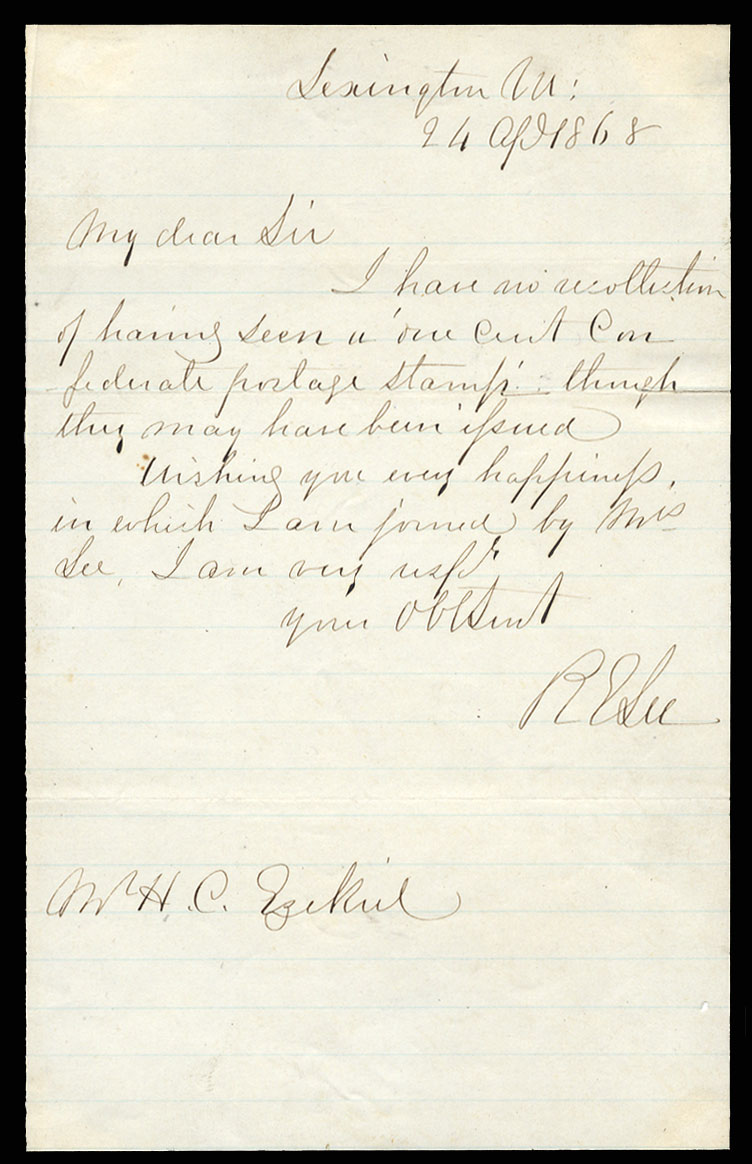 Lexington Va:
24 Apl 1868
My dear Sir
I have no recollection
of having seen a 'one cent Con
federate postage stamp' though
they may have been issued
Wishing you every happiness,
in which I am joined by Mrs
Lee, I am very respy
your Obt Servt
R E Lee
Mr H. C. Ezekiel